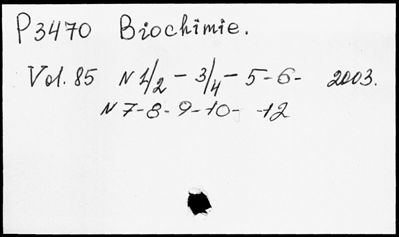 P3470 Biochimie.
Vol. 85 N 1/2 - 3/4 - 5 - 6 - 2003.
N 7 - 8 - 9 - 10 - - 12